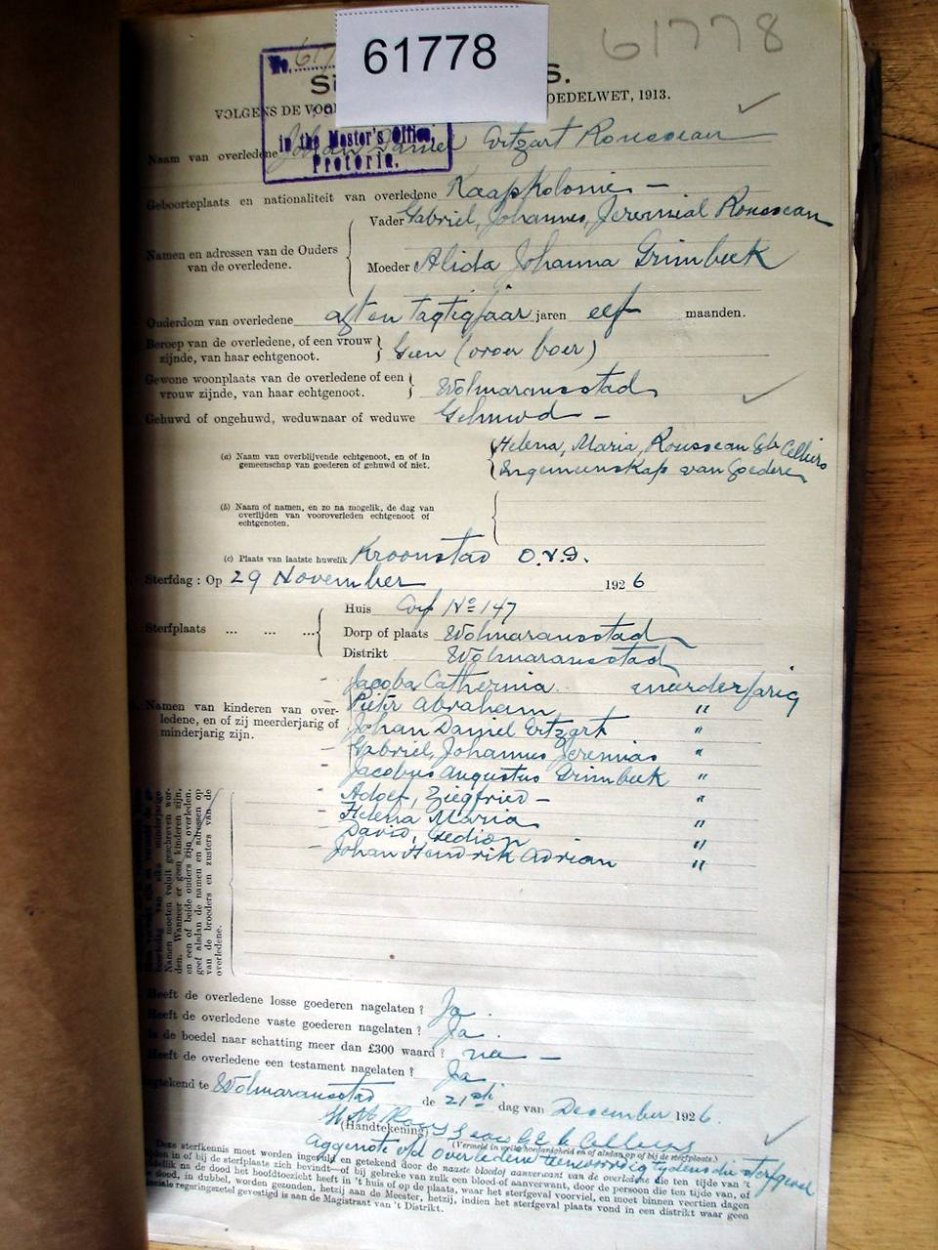 61778
61778
No. 617
S.
VOLGENS DE VOO OEDELWET, 1913.
in the Master's Office,
Pretoria.
Naam van overledene Johan Daniel Ertzart Rousseau
Geboorteplaats en nationaliteit van overledene Kaap Kolonie —
Namen en adressen van de Ouders van de overledene.
Vader Gabriel, Johannes, Jeremial Rousseau
Moeder Alida Johanna Grimbeek
Ouderdom van overledene agt en tagtig jaar jaren elf maanden.
Beroep van de overledene, of een vrouw
zijnde, van haar echtgenoot. Geen (vroer boer)
Gewone woonplaats van de overledene of een
vrouw zijnde, van haar echtgenoot. Wolmaransstad
Gehuwd of ongehuwd, weduwnaar of weduwe Gehuwd —
(a) Naam van overblijvende echtgenoot, en of in
gemeenschap van goederen of gehuwd of niet.
Helena, Maria, Rousseau Geb Celliers
In gemeenskap van Goedere
(b) Naam of namen, en zo na mogelik, de dag van
overlijden van vooroverleden echtgenoot of
echtgenoten.
(c) Plaats van laatste huwelik Kroonstad O.V.S.
Sterfdag : Op 29 November 1926
Sterfplaats ... ... ...
Huis Erf No 147
Dorp of plaats Wolmaransstad
Distrikt Wolmaransstad
Namen van kinderen van over-
ledene, en of zij meerderjarig of
minderjarig zijn.
- Jacoba Catherina meerderjarig
- Pieter Abraham "
Johan Daniel Ertzart "
- Gabriel, Johannes Jeremias "
- Jacobus Augustus Grimbeek "
- Adolf, Ziegfried — "
- Helena Maria "
- David, Gedion "
- Johan Hendrik Adrian "
Namen moeten voluit geschreven wor-
den. Wanneer er geen kinderen zijn,
en een of beide ouders zijn overleden,
geef alsdan de namen en adressen op
van de broeders en zusters van de
overledene.
Heeft de overledene losse goederen nagelaten ? Ja.
Heeft de overledene vaste goederen nagelaten ? Ja.
Is de boedel naar schatting meer dan £300 waard ? nee —
Heeft de overledene een testament nagelaten ? Ja
Getekend te Wolmaransstad de 21ste dag van Desember 1926.
(Handtekening) H M Rousseau Geb Celliers
(Vermeld in welke hoedanigheid en of alsdan op of bij de sterfplaats.)
Aggenote v/d overledene teenwoordig tydens die sterfgeval
Deze sterfkennis moet worden ingevuld en getekend door de naaste bloed of aanverwant van de overledene die ten tijde van 't
lijden in of bij de sterfplaats zich bevindt—of bij gebreke van zulk een bloed of aanverwant, door de persoon die ten tijde van, of
dadelik na de dood het hoofdtoezicht heeft in 't huis of op de plaats, waar het sterfgeval voorviel, en moet binnen veertien dagen
de dood, in dubbel, worden gezonden, hetzij aan de Meester, hetzij, indien het sterfgeval plaats vond in een distrikt waar geen
speciale regeringszetel gevestigd is aan de Magistraat van 't Distrikt.